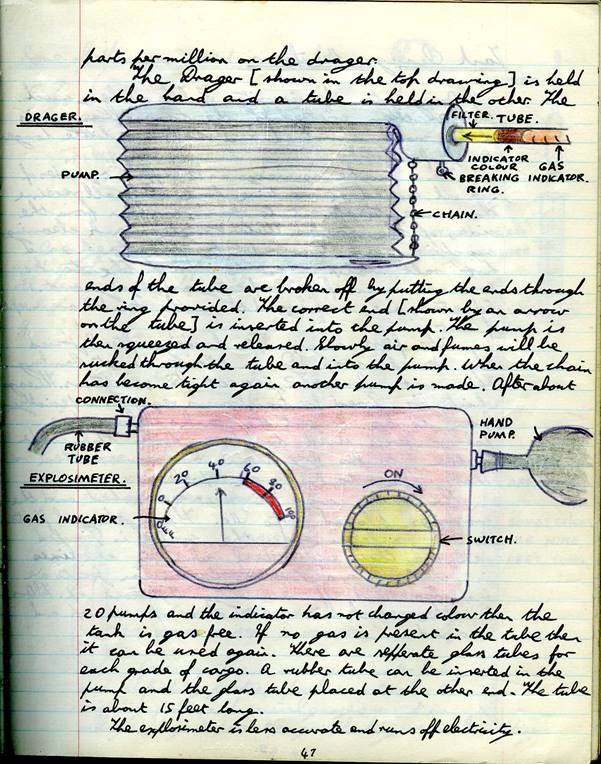 parts per million on the drager.
The Drager [shown in the top drawing] is held
in the hand and a tube is held in the other. The
DRAGER.
FILTER. TUBE.
PUMP.
INDICATOR COLOUR
GAS INDICATOR.
BREAKING RING.
CHAIN.
ends of the tube are broken off by putting the ends through
the ring provided. The correct end [shown by an arrow
on the tube] is inserted into the pump. The pump is
then squeezed and released. Slowly air and fumes will be
sucked through the tube and into the pump. When the chain
has become tight again another pump is made. After about
CONNECTION.
RUBBER TUBE
HAND PUMP.
EXPLOSIMETER.
ON
0 20 40 60 80 100
GAS INDICATOR.
SWITCH.
20 pumps and the indicator has not changed colour then the
tank is gas free. If no gas is present in the tube then
it can be used again. There are sepperate glass tubes for
each grade of cargo. A rubber tube can be inserted in the
pump and the glass tube placed at the other end. The tube
is about 15 feet long.
The explosimeter is less accurate and runs off electricity.
47